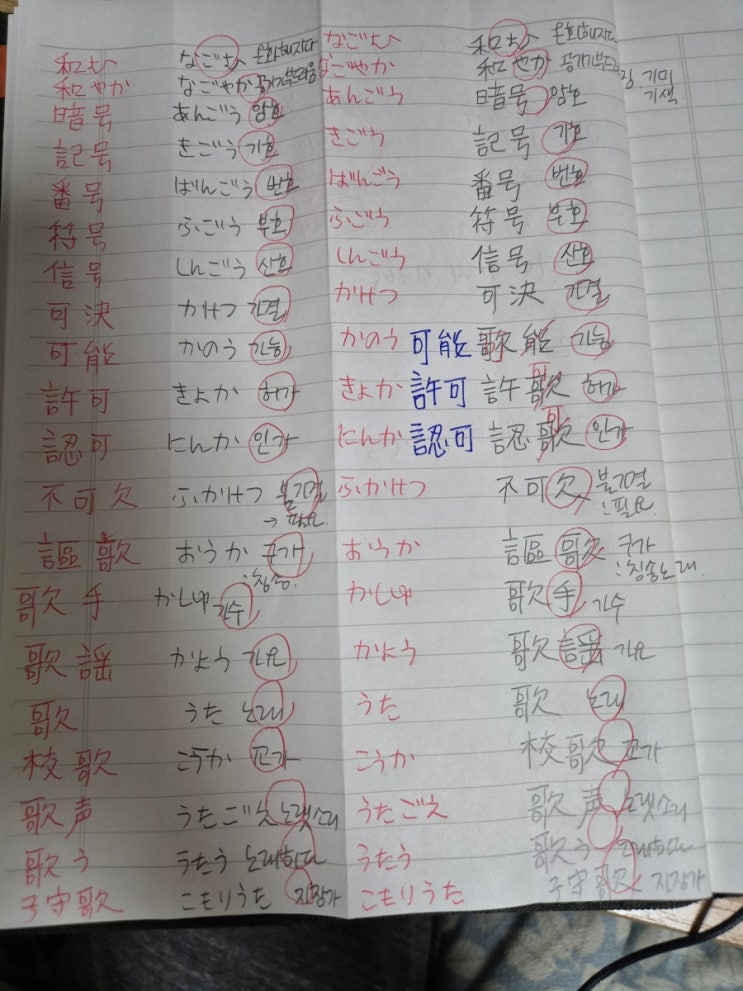 和む なごむ 온화해지다 なごむ 和む 온화해지다
和やか なごやか 공기부드러움 なごやか 和やか 공기부드러 기미
기색
暗号 あんごう 암호 あんごう 暗号 암호
記号 きごう 기호 きごう 記号 기호
番号 ばんごう 번호 ばんごう 番号 번호
符号 ふごう 부호 ふごう 符号 부호
信号 しんごう 신호 しんごう 信号 신호
可決 かけつ 가결 かけつ 可決 가결
可能 かのう 가능 かのう 可能 歌能 가능
許可 きょか 허가 きょか 許可 許歌 可 허가
認可 にんか 인가 にんか 認可 認歌 可 인가
不可欠 ふかけつ 불가결 ふかけつ 不可欠 불가결
→필요 :필요
謳歌 おうか 구가 おうか 謳歌 구가
:칭송 :칭송노래
歌手 かしゅ 가수 かしゅ 歌手 가수
歌謡 かよう 가요 かよう 歌謡 가요
歌 うた 노래 うた 歌 노래
校歌 こうか 교가 こうか 校歌 교가
歌声 うたごえ 노랫소리 うたごえ 歌声 노랫소리
歌う うたう 노래하다 うたう 歌う 노래하다
子守歌 こもりうた 자장가 こもりうた 子守歌 자장가